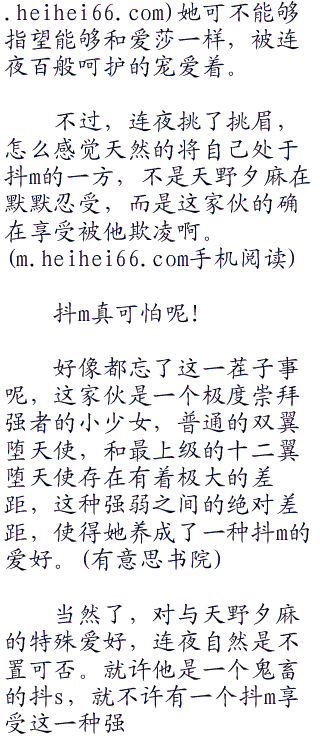 .heihei66.com)她可不能够
指望能够和爱莎一样，被连
夜百般呵护的宠爱着。
不过，连夜挑了挑眉，
怎么感觉天然的将自己处于
抖m的一方，不是天野夕麻在
默默忍受，而是这家伙的确
在享受被他欺凌啊。
(m.heihei66.com手机阅读)
抖m真可怕呢！
好像都忘了这一茬子事
呢，这家伙是一个极度崇拜
强者的小少女，普通的双翼
堕天使，和最上级的十二翼
堕天使存在有着极大的差
距，这种强弱之间的绝对差
距，使得她养成了一种抖m的
爱好。(有意思书院)
当然了，对与天野夕麻
的特殊爱好，连夜自然是不
置可否。就许他是一个鬼畜
的抖s，就不许有一个抖m享
受这一种强